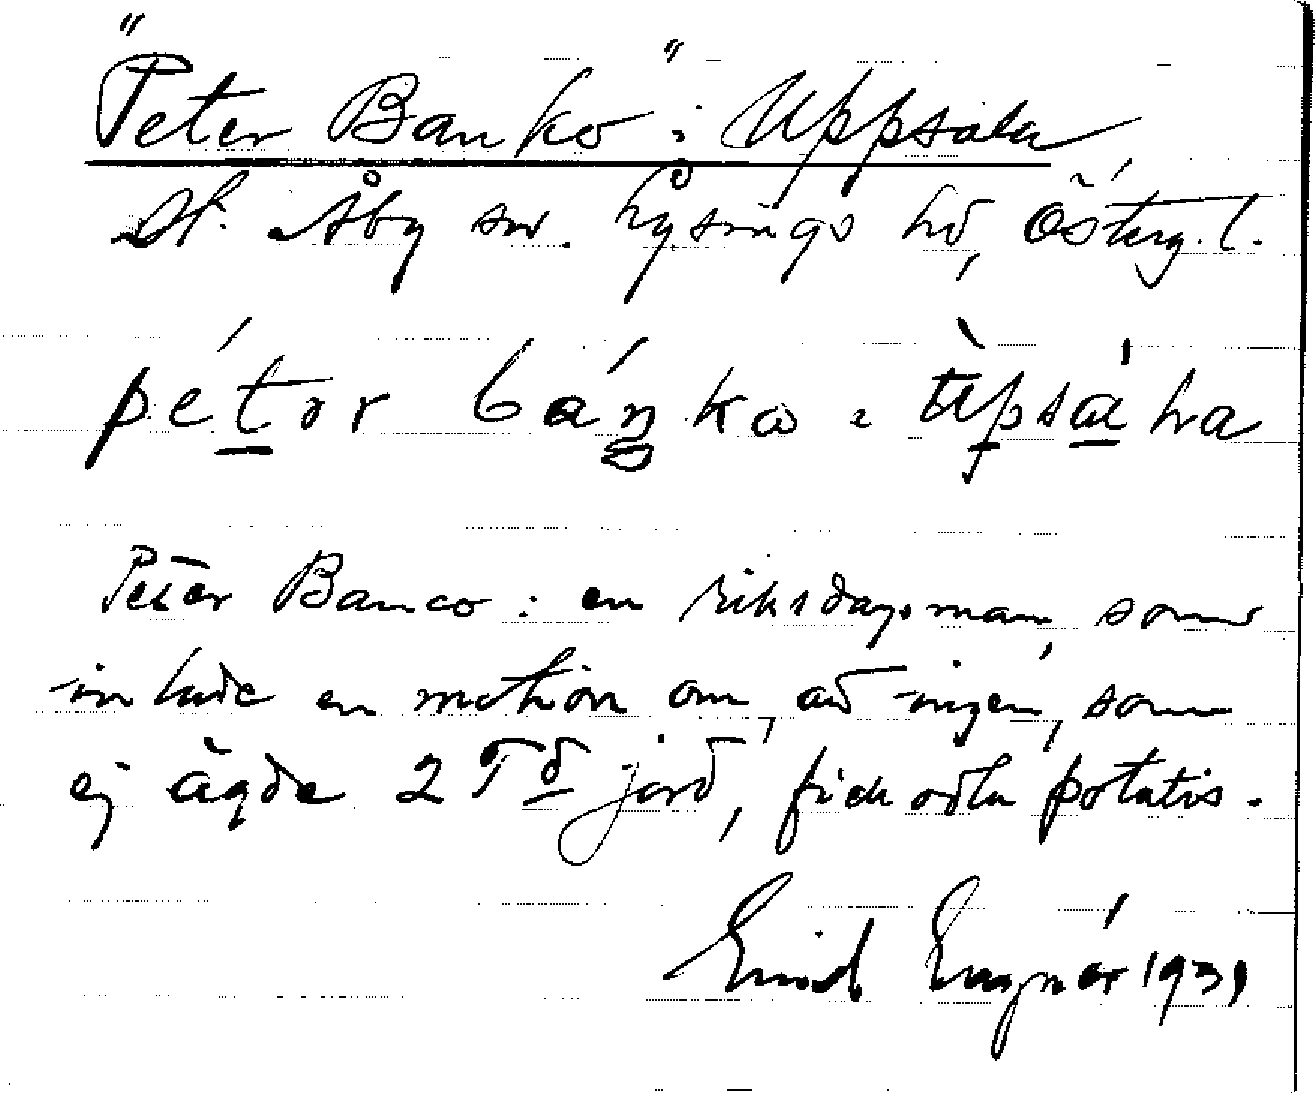 "Peter Banko" i Uppsala,
St. Åby sn. Lysings hd, Österg.l.
pétər báŋkω i ùpsála
Peter Banco: en riksdagsman, som
inlade en motion om, att ingen, som
ej ägde 2 Td jord, fick odla potatis.
Einid Engnér 1931